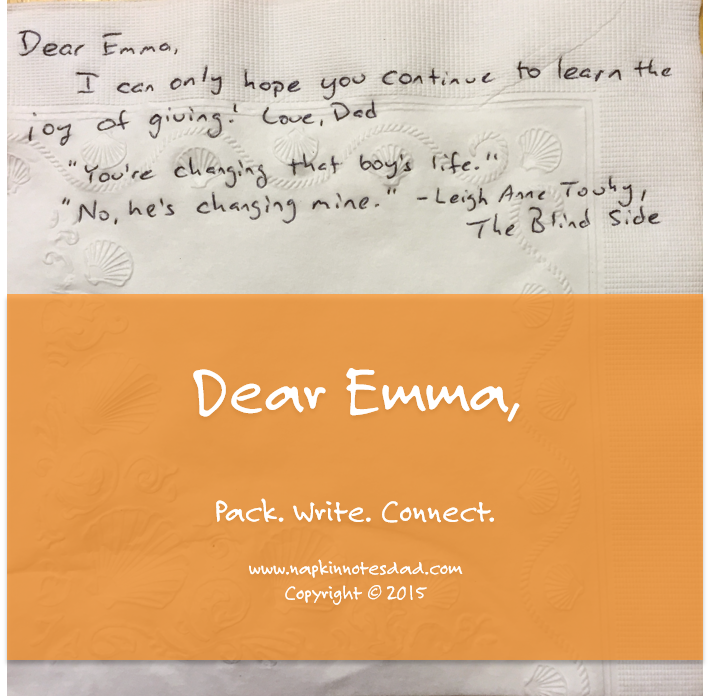 Dear Emma,
I can only hope you continue to learn the
joy of giving! Love, Dad
"You're changing that boy's life."
"No, he's changing mine." -Leigh Anne Touhy,
The Blind Side
Dear Emma,
Pack. Write. Connect.
www.napkinnotesdad.com
Copyright © 2015